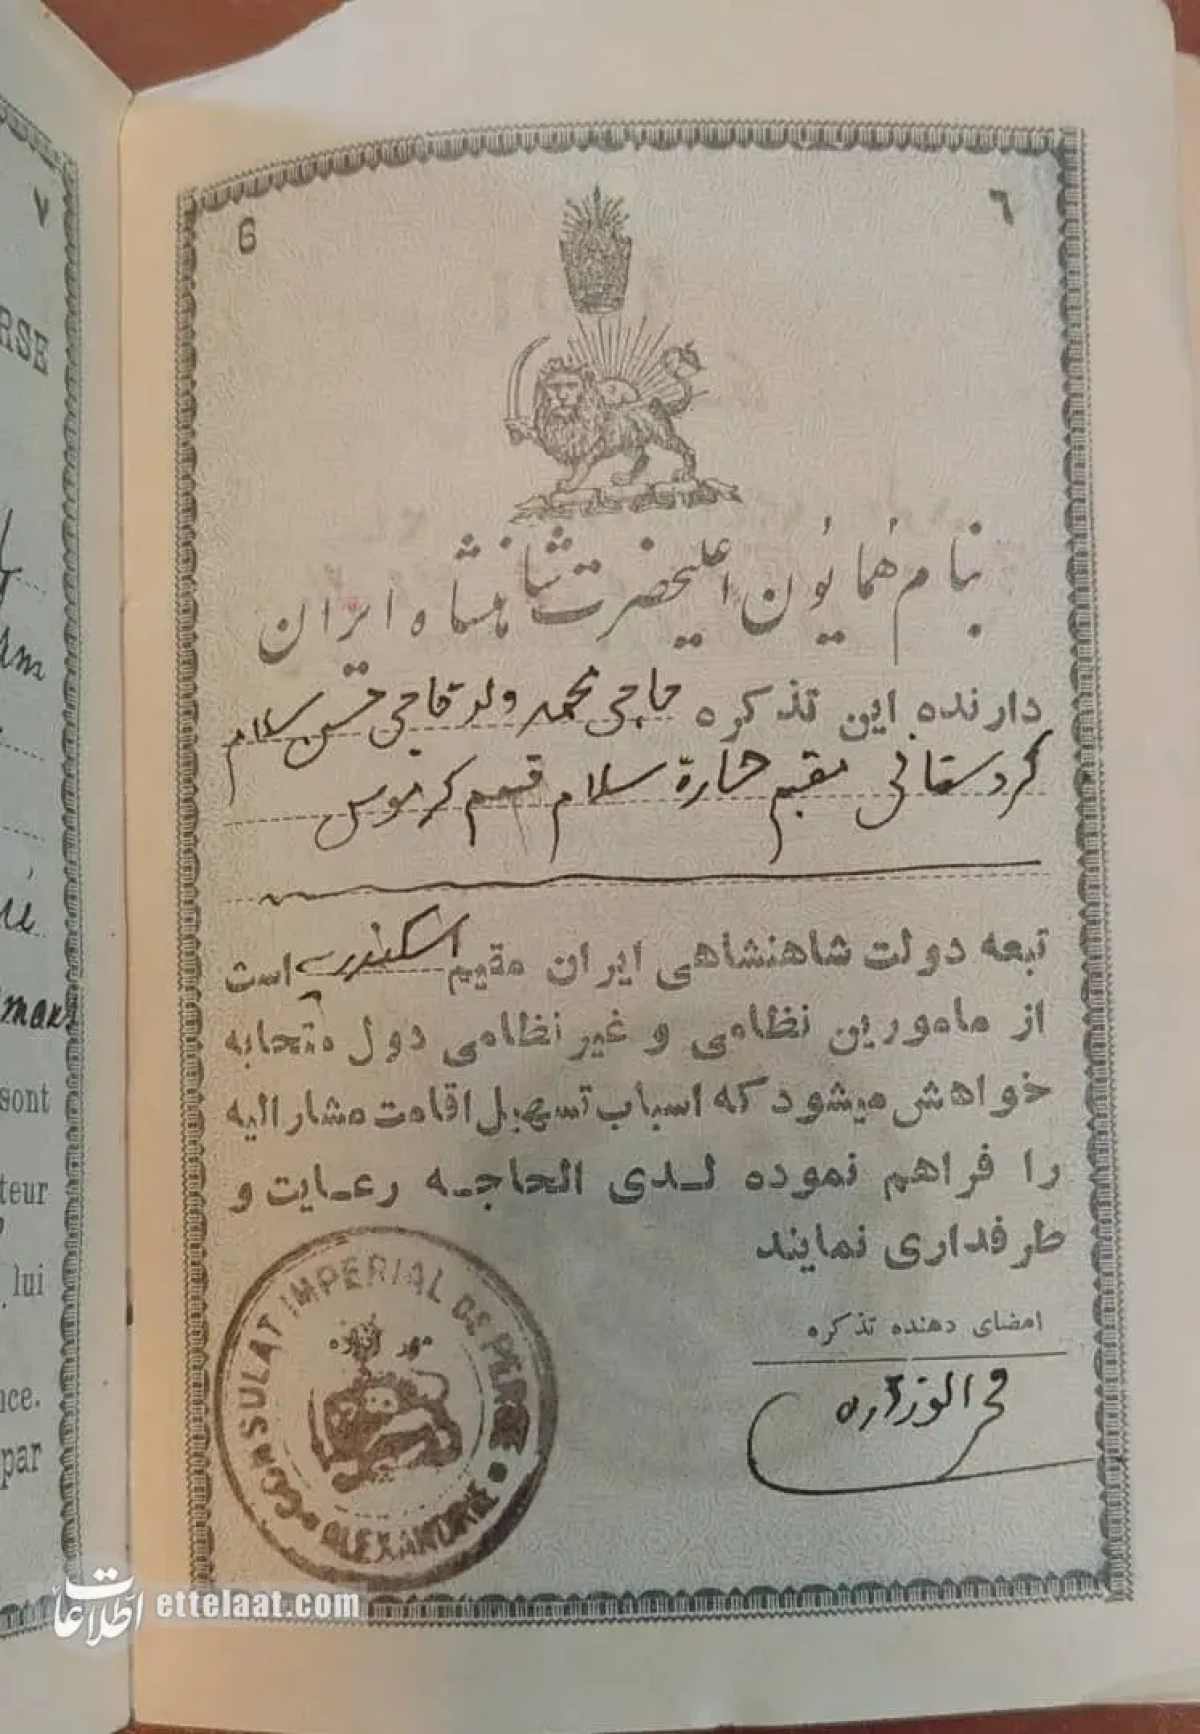 ٧
RSE
sont
teur
lui
nce.
par
6
٦
بنام همایون اعلیحضرت شاهنشاه ایران
دارنده این تذکره حاجی محمد ولد حاجی حسن سلام
کردستانی مقیم حارة سلام قسم کرموس
تبعه دولت شاهنشاهی ایران مقیم اسکندریه است
از مامورین نظامی و غیر نظامی دول متحابه
خواهش میشود که اسباب تسهیل اقامت مشارالیه
را فراهم نموده لدی الحاجه رعایت و
طرفداری نمایند
امضای دهنده تذکره
فخر الوزاره
CONSULAT IMPERIAL DE PERSE
ALEXANDRIE
اطلاعات ettelaat.com